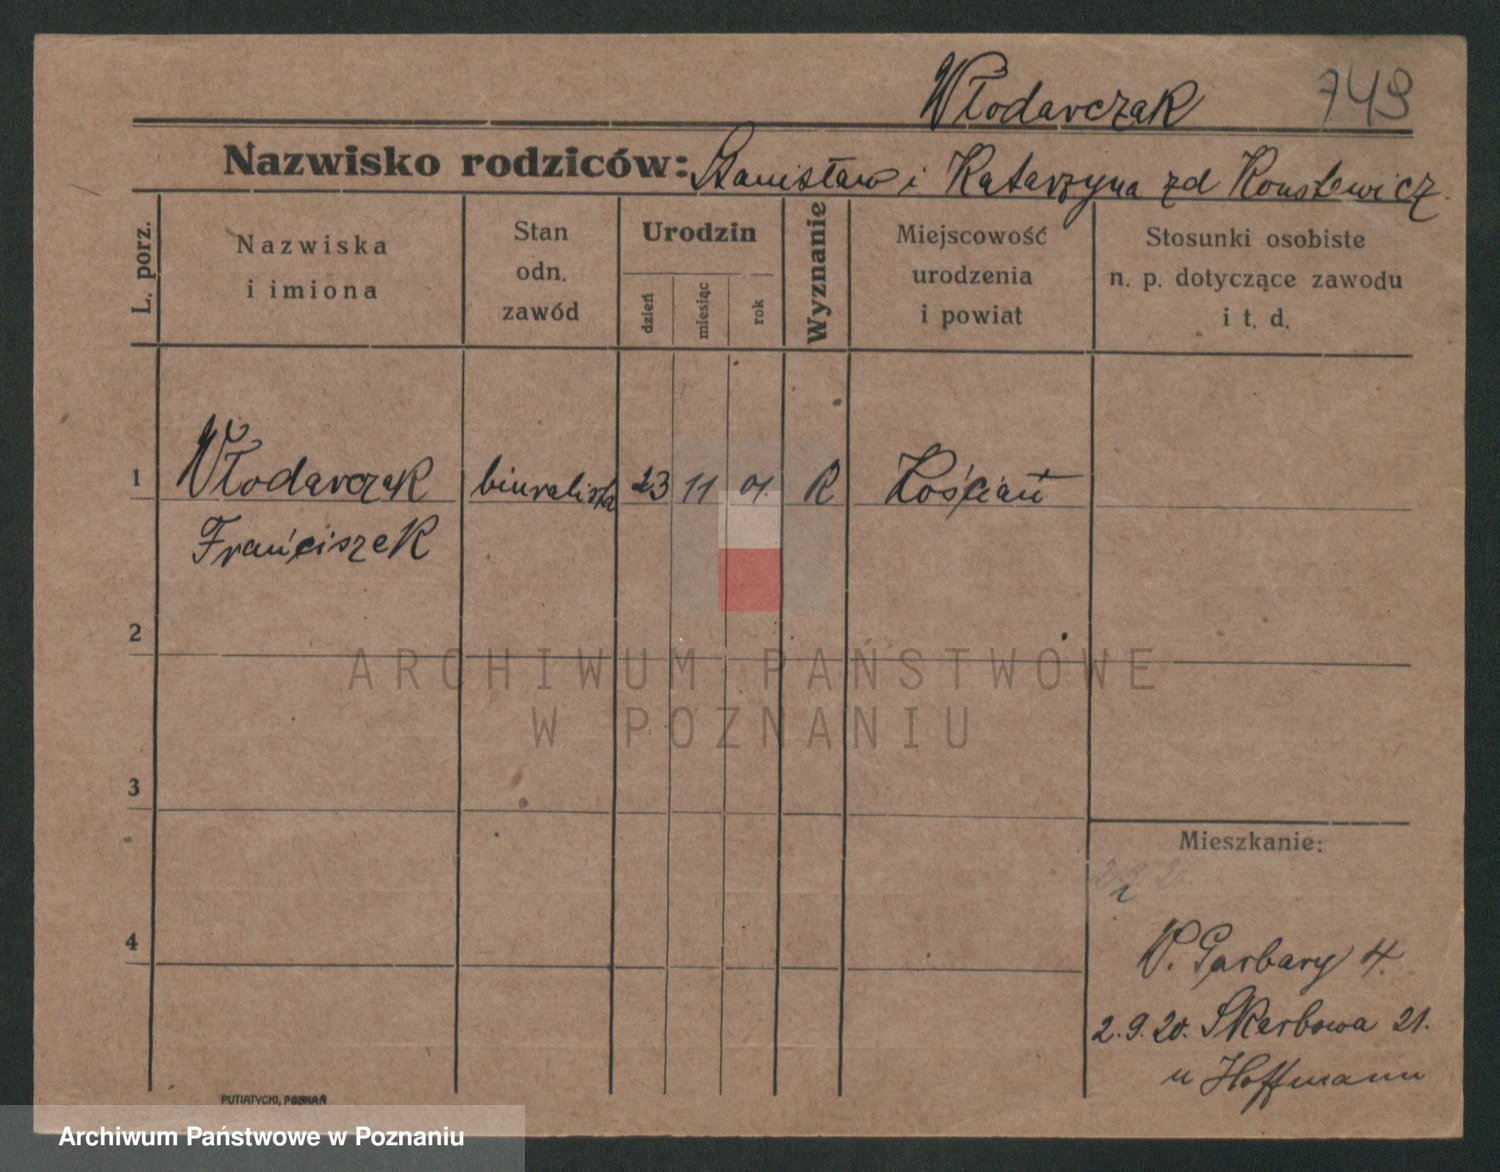 Włodarczak 749
Nazwisko rodziców: Stanisław i Katarzyna zd Konstewicz
L. porz.
Nazwiska
i imiona
Stan
odn.
zawód
Urodzin
dzień
miesiąc
rok
Wyznanie
Miejscowość
urodzenia
i powiat
Stosunki osobiste
n. p. dotyczące zawodu
i t. d.
1 Włodarczak biuralista 23 11 01. R Kościań
Franciszek
2
ARCHIWUM PAŃSTWOWE
W POZNANIU
3
Mieszkanie:
4
W. Garbary 4.
2.9.20. Skarbowa 21.
u Hoffmann
PUTIATYCKI, POZNAŃ
Archiwum Państwowe w Poznaniu